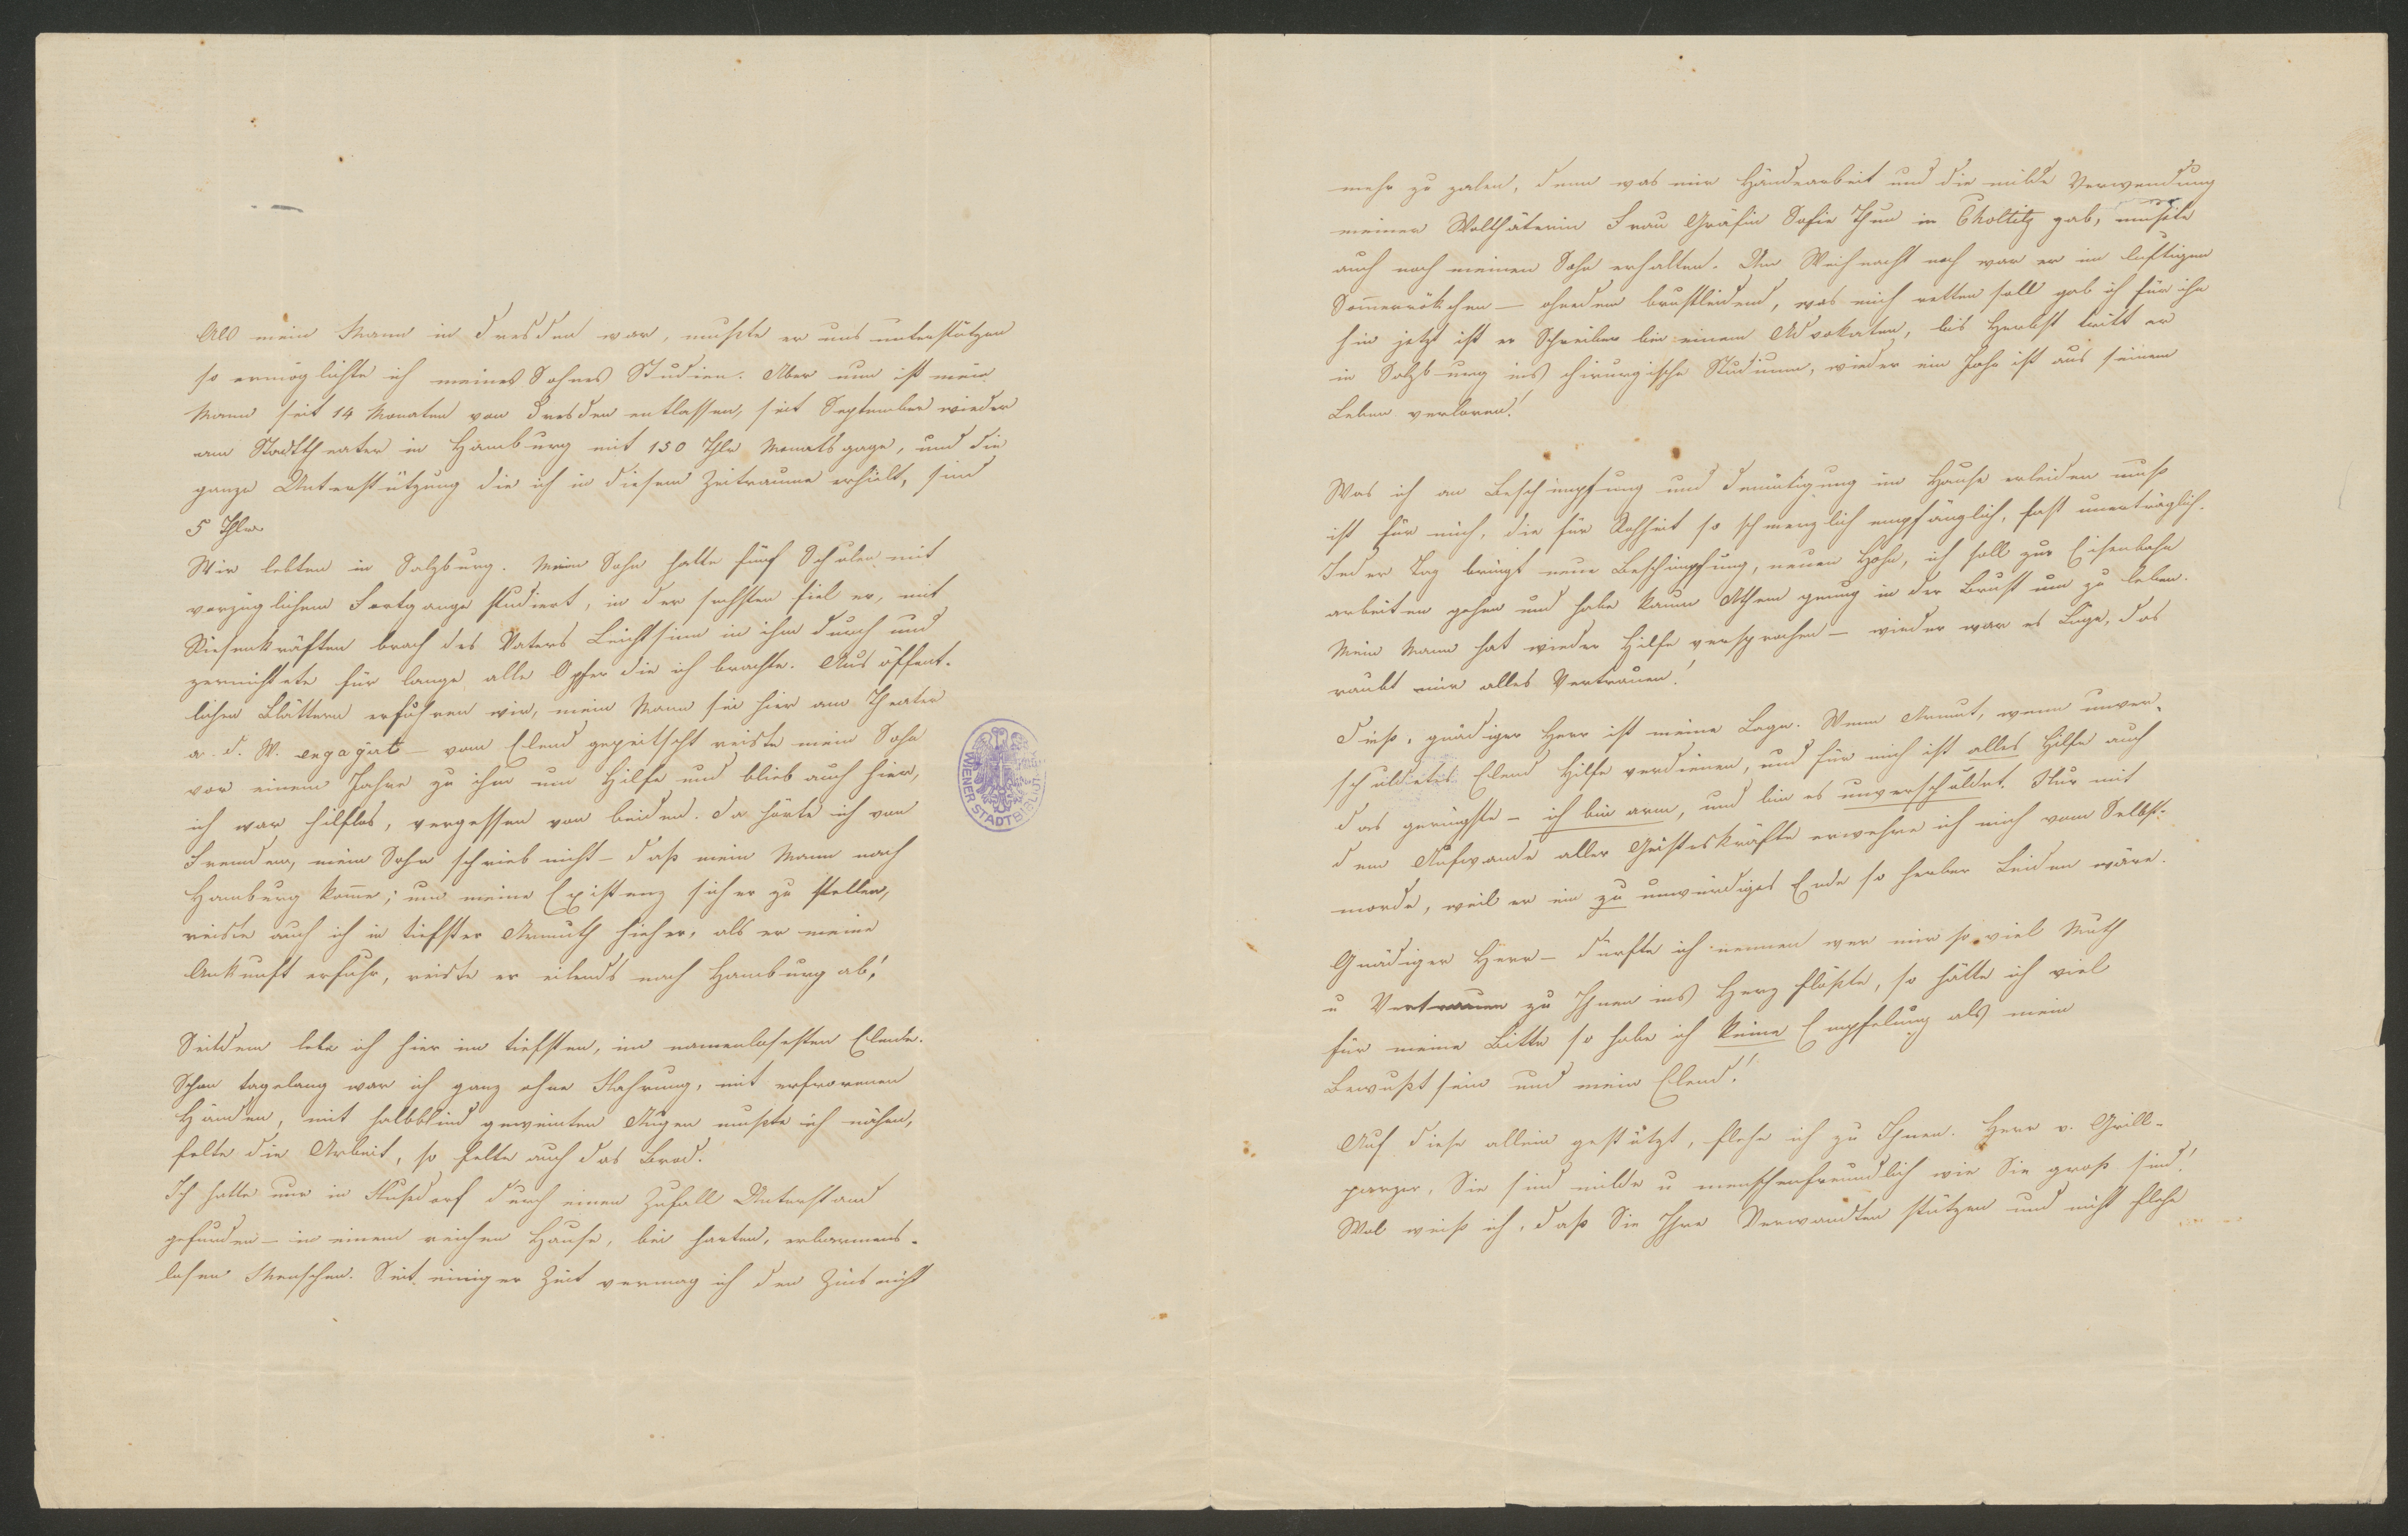 Als mein Mann in Dresden war, mußte er uns unterstützen
so ermöglichte ich meines Sohnes Studien. Aber nun ist mein
Mann seit 14 Monaten von Dresden entlassen, seit September wieder
am Stadttheater in Hamburg mit 150 Thlr Monatsgage, und die
ganze Unterstützung die ich in diesem Zeitraume erhielt, sind
5 Thlr.
Wir lebten in Salzburg. Mein Sohn hatte fünf Schulen mit
vorzüglichem Fortgange studiert, in der sechsten fiel er, mit
Riesenkräften brach des Vaters Leichtsinn in ihm durch und
zernichtete für lange alle Opfer die ich brachte. Aus öffent-
lichen Blättern erfuhren wir, mein Mann sei hier am Theater
a. d. W. engagirt – vom Elend gepeitscht reiste mein Sohn
vor einem Jahre zu ihm um Hilfe und blieb auch hier,
ich war hilflos, vergessen von beiden. Da hörte ich von
Fremden, mein Sohn schrieb nicht – daß mein Mann nach
Hamburg kom̅e; um meine Existenz sicher zu stellen,
reiste auch ich in tiefster Armuth hieher, als er meine
Ankunft erfuhr, reiste er eilends nach Hamburg ab!
Seitdem lebe ich hier im tiefsten, im namenlosesten Elende.
Schon tagelang war ich ganz ohne Nahrung, mit erfrorenen
Händen, mit halbblind geweinten Augen mußte ich nähen,
felte die Arbeit, so felte auch das Brod.
Ich hatte nur in Nußdorf durch einen Zufall Unterstand
gefunden – in einem reichen Hause, bei harten, erbarmens-
losen Menschen. Seit einiger Zeit vermag ich den Zins nicht
mehr zu zalen, denn was mir Händearbeit und die milde Verwendung
meiner Wolthäterin Frau Gräfin Sofie Thun in Choltitz gab, mußte
auch noch meinen Sohn erhalten. Um Weihnacht noch war er im luftigen
Som̅erröckchen – ohnedem brustleidend, was mich retten soll gab ich für ihn
hin jetzt ist er Schreiber bei einem Advokaten, bis Herbst tritt er
in Salzburg ins chirurgische Studium, wieder ein Jahr ist aus seinem
Leben verloren!
Was ich an Beschimpfung und Demütigung im Hause erleiden muß
ist für mich, die für Rohheit so schmerzlich empfänglich, fast unerträglich.
Jeder Tag bringt neue Beschimpfung, neuen Hohn, ich soll zur Eisenbahn
arbeiten gehen und habe kaum Athem genug in der Brust um zu leben.
Mein Mann hat wieder Hilfe versprochen – wieder war es Lüge, das
raubt mir alles Vertrauen!
Dieß, gnädiger Herr ist meine Lage. Wenn Armut, wenn unver-
schuldetes Elend Hilfe verdienen, und für mich ist alles Hilfe auch
das geringste – ich bin arm, und bin es unverschuldet. Nur mit
dem Aufwande aller Geisteskräfte erwehre ich mich vom Selbst-
morde, weil er ein zu unwürdiges Ende so herber Leiden wäre.
Gnädiger Herr – dürfte ich nennen wer mir so viel Muth
u Vertrauen zu Ihnen ins Herz flößte, so hätte ich viel
für meine Bitte so habe ich keine Empfelung als mein
Bewußtsein und mein Elend!
Auf diese allein gestützt, flehe ich zu Ihnen. Herr v. Grill-
parzer, Sie sind milde u menschenfreundlich wie Sie groß sind!
Wol weiß ich, daß Sie Ihre Verwandten stützen und nicht flehe
WIENER STADTBIBLIOTHEK